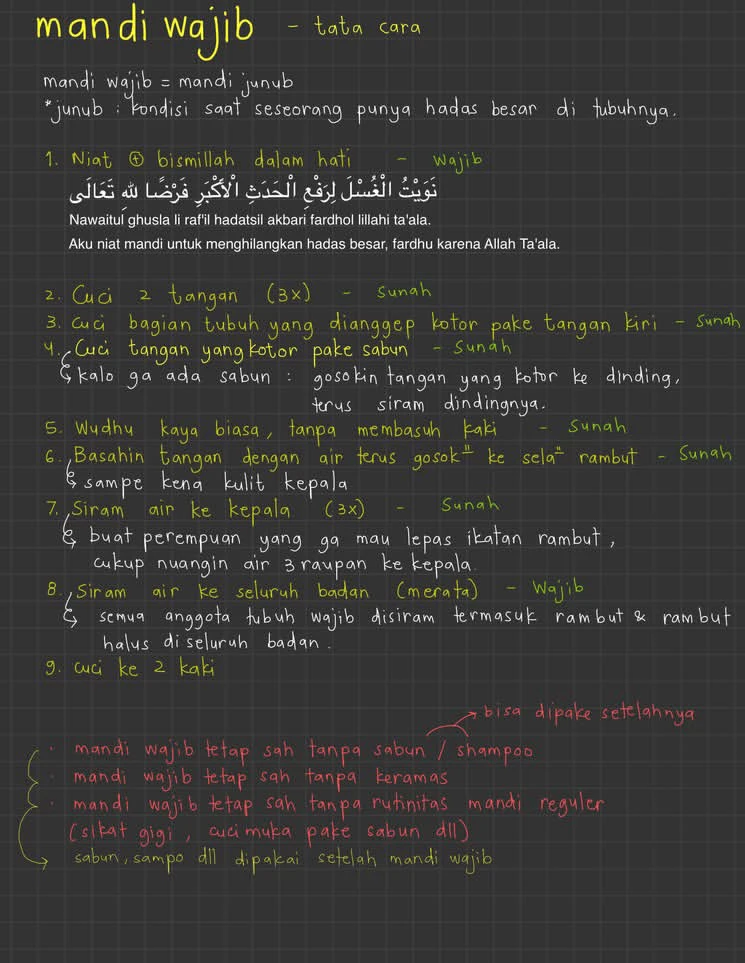 mandi wajib - tata cara
mandi wajib = mandi junub
*junub : kondisi saat seseorang punya hadas besar di tubuhnya.
1. Niat ⊕ bismillah dalam hati - wajib
نَوَيْتُ الْغُسْلَ لِرَفْعِ الْحَدَثِ الْأَكْبَرِ فَرْضًا لِلهِ تَعَالَى
Nawaitul ghusla li raf'il hadatsil akbari fardhol lillahi ta'ala.
Aku niat mandi untuk menghilangkan hadas besar, fardhu karena Allah Ta'ala.
2. Cuci 2 tangan (3x) - Sunah
3. cuci bagian tubuh yang dianggep kotor pake tangan kiri - Sunah
4. Cuci tangan yang kotor pake sabun - Sunah
kalo ga ada sabun : gosokin tangan yang kotor ke dinding,
terus siram dindingnya.
5. Wudhu kaya biasa, tanpa membasuh kaki - Sunah
6. Basahin tangan dengan air terus gosok" ke sela" rambut - Sunah
sampe kena kulit kepala
7. Siram air ke kepala (3x) - Sunah
buat perempuan yang ga mau lepas ikatan rambut,
cukup nuangin air 3 raupan ke kepala.
8. Siram air ke seluruh badan (merata) - Wajib
semua anggota tubuh wajib disiram termasuk rambut & rambut
halus di seluruh badan.
9. cuci ke 2 kaki
→ bisa dipake setelahnya
· mandi wajib tetap sah tanpa sabun / shampoo
· mandi wajib tetap sah tanpa keramas
· mandi wajib tetap sah tanpa rutinitas mandi reguler
(sikat gigi, cuci muka pake sabun dll)
→ sabun, sampo dll dipakai setelah mandi wajib